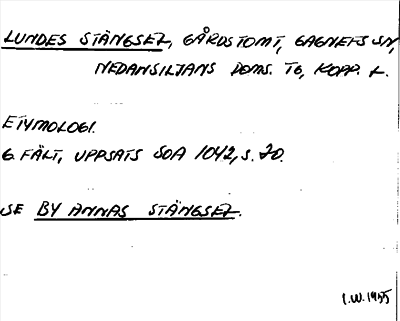 LUNDES STÄNGSEL, GÅRDSTOMT, GAGNEFS SN,
NEDANSILJANS DOMS. TG, KOPP. L.
ETYMOLOGI.
G. FÄLT, UPPSATS SOA 1042, S. 70.
SE BY ANNAS STÄNGSEL.
I.W. 1955